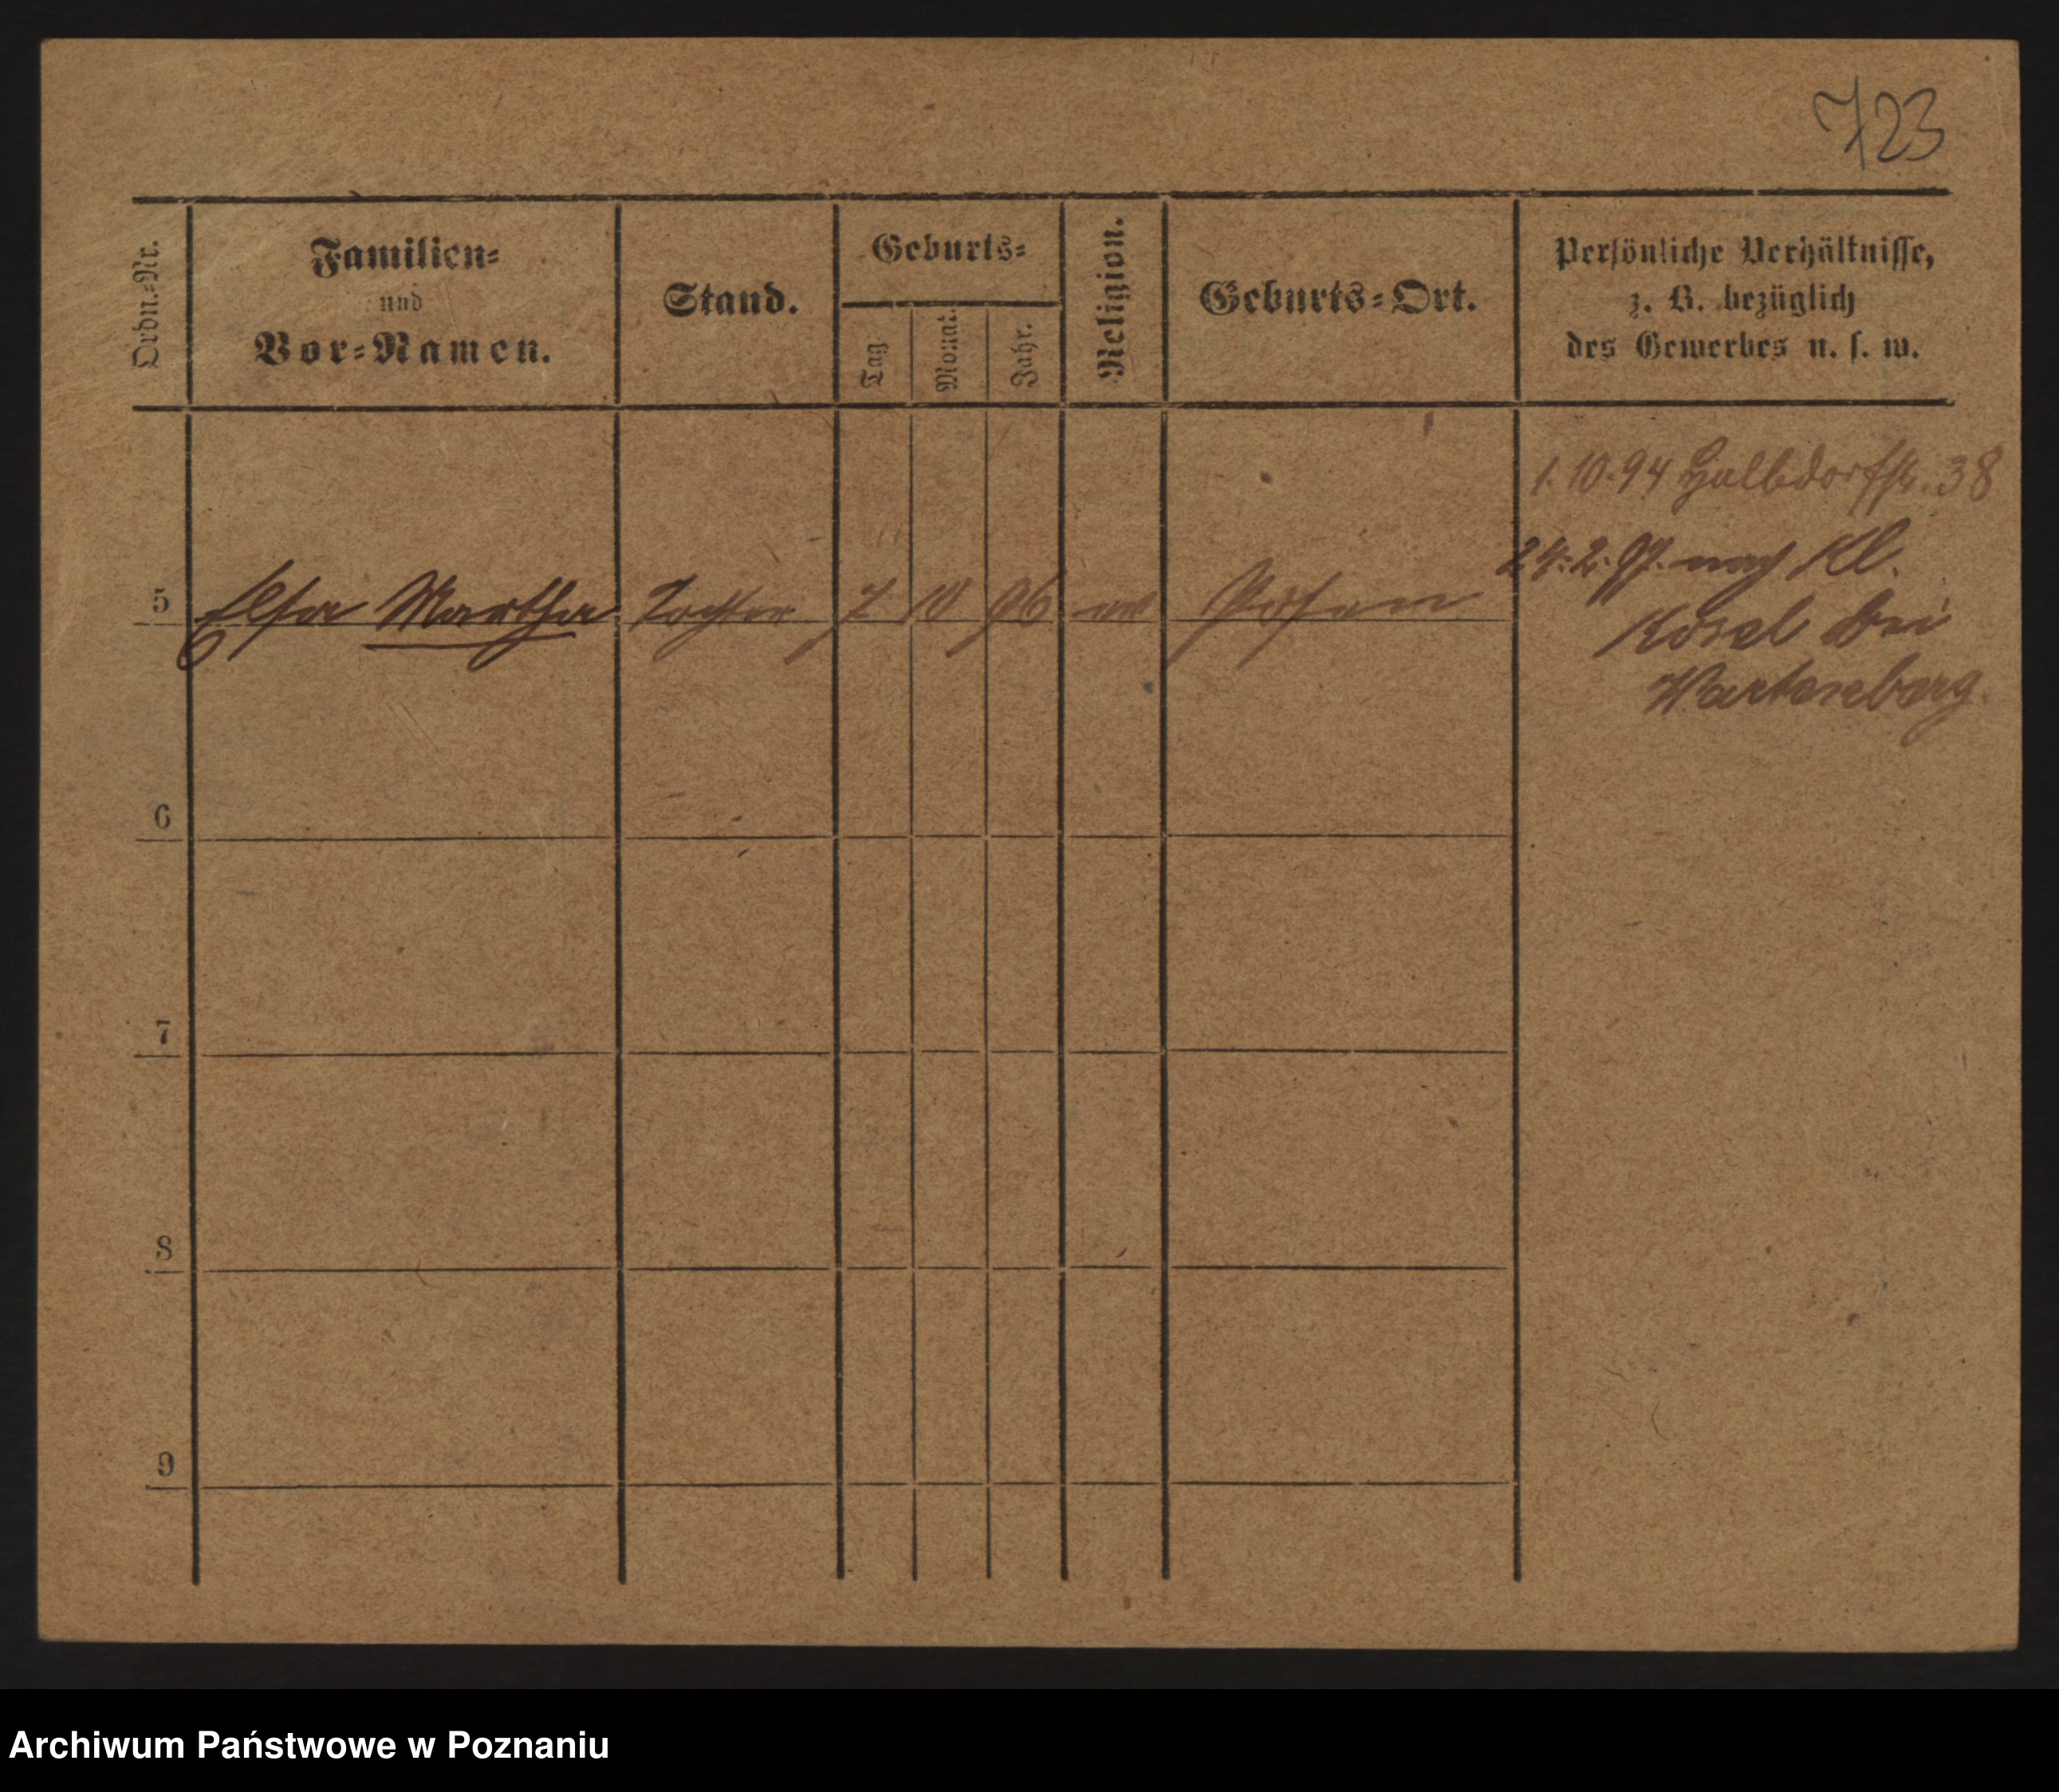 723
Ordn.-Nr.
Familien-
und
Vor-Namen.
Stand.
Geburts-
Tag
Monat.
Jahr.
Religion.
Geburts-Ort.
Persönliche Verhältnisse,
z. B. bezüglich
des Gewerbes u. s. w.
1.10.94 Halbdorfstr. 38
24.2.97. nach Kl.
5 Elsa Martha Tochter 7 10 96 ev Posen
Kosel bei
Wartenberg
6
7
8
9
Archiwum Państwowe w Poznaniu